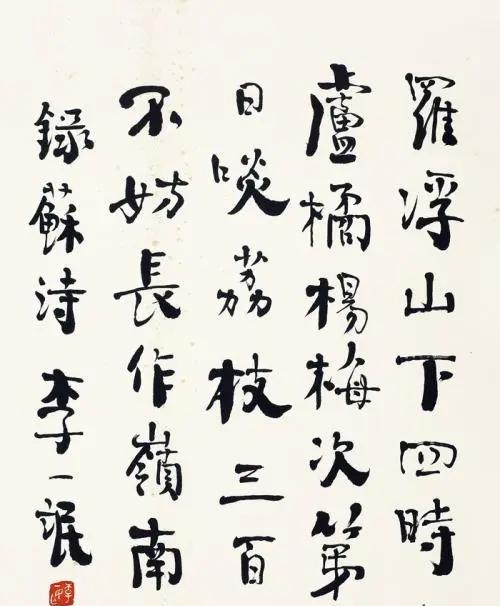 羅浮山下四時
盧橘楊梅次第
日啖荔枝三百
不妨長作嶺南
錄蘇詩 李一氓